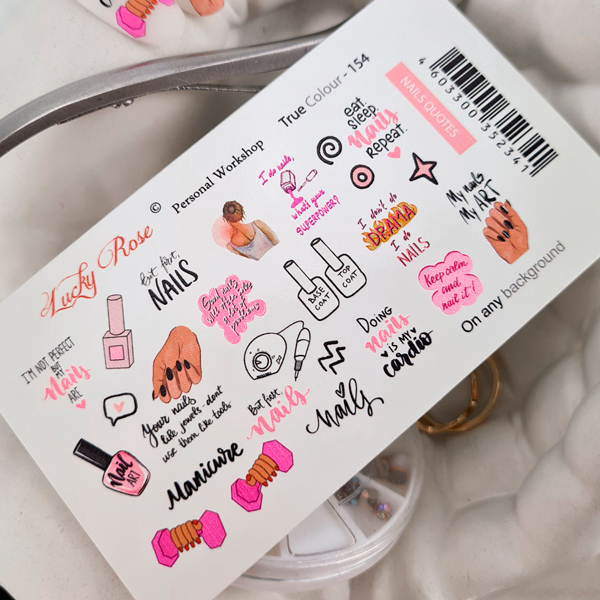 Lucky Rose
©
Personal Workshop
True Colour - 154
NAILS QUOTES
4 603300 352341
eat
sleep
nails
repeat.
I do nails,
what's your
SUPERPOWER?
I don't do
DRAMA
I do
NAILS
My nails
My ART
But first,
NAILS
BASE
COAT
TOP
COAT
Keep calm
and
nail it!
On any background
I'M NOT PERFECT
BUT
MY
Nails
ARE
Doing
nails
is my
cardio
Your nails
like jewels - dont
use them like tools
But first,
nails
nails
Nail
ART
Manicure